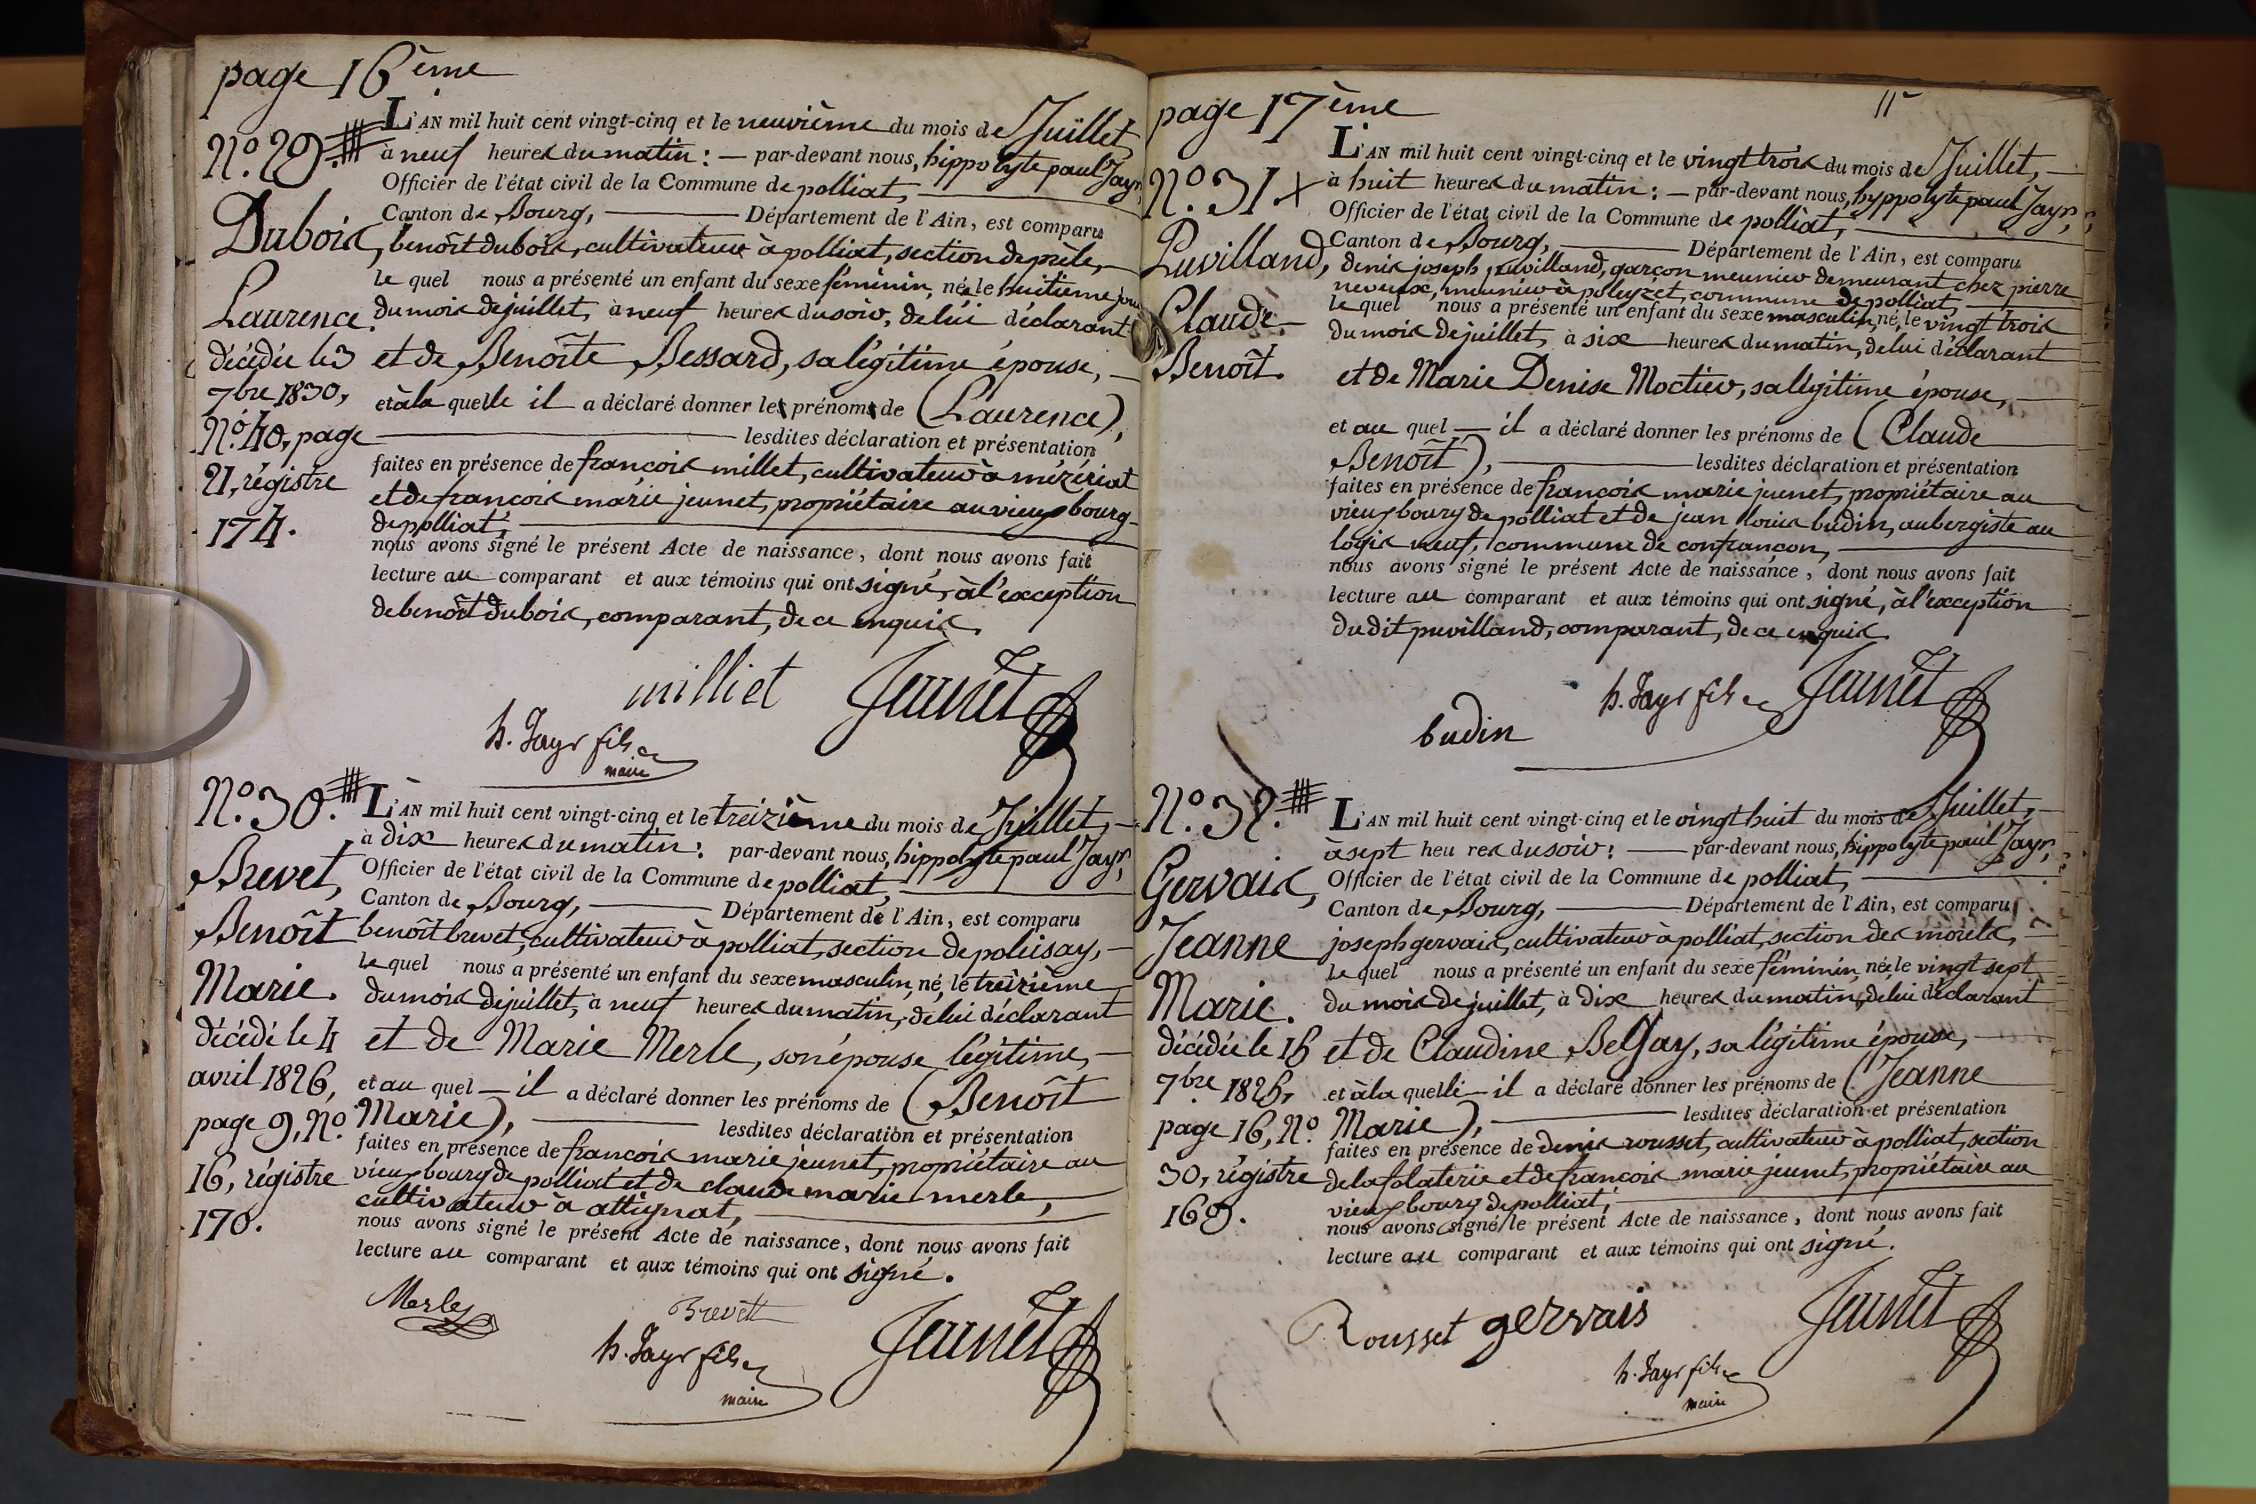 page 16ème
N.º 29.
Dubois,
Laurence.
décédée le 3
7bre 1830,
N.º 40, page
21, régistre
174.
L'AN mil huit cent vingt-cinq et le neuvième du mois de Juillet
à neuf heures du matin : — par-devant nous, hippolyte paul Jayr,
Officier de l'état civil de la Commune de polliat,
Canton de Bourg, Département de l'Ain, est comparu
benoît dubois, cultivateur à polliat, section de prèle,
le quel nous a présenté un enfant du sexe féminin, née le huitième jour
du mois de juillet, à neuf heures du soir, de lui déclarant
et de Benoîte Bessard, sa légitime épouse,
et à la quelle il a déclaré donner les prénoms de (Laurence),
lesdites déclaration et présentation
faites en présence de françois millet, cultivateur à mézériat
et de françois marie jeunet, propriétaire au vieux bourg
de polliat,
nous avons signé le présent Acte de naissance, dont nous avons fait
lecture au comparant et aux témoins qui ont signé, à l'exception
de benoît dubois, comparant, de ce enquis.
milliet Jeunet
h. Jayr fils
maire
N.º 30.
Brevet,
Benoît
Marie.
décédé le 4
avril 1826,
page 9, N.º
16, régistre
170.
L'AN mil huit cent vingt-cinq et le treizième du mois de Juillet,
à dix heures du matin : par-devant nous, hippolyte paul Jayr,
Officier de l'état civil de la Commune de polliat,
Canton de Bourg, Département de l'Ain, est comparu
benoît brevet, cultivateur à polliat, section de polisay,
le quel nous a présenté un enfant du sexe masculin, né, le treizième
du mois de juillet, à neuf heures du matin, de lui déclarant
et de Marie Merle, son épouse légitime,
et au quel — il a déclaré donner les prénoms de (Benoît
Marie), lesdites déclaration et présentation
faites en présence de françois marie jeunet, propriétaire au
vieux bourg de polliat et de claude marie merle,
cultivateur à attignat,
nous avons signé le présent Acte de naissance, dont nous avons fait
lecture au comparant et aux témoins qui ont signé.
Merle Brevett
h. Jayr fils Jeunet
maire
page 17ème
N.º 31 +
Puvilland,
Claude-
Benoît.
L'AN mil huit cent vingt-cinq et le vingt trois du mois de Juillet,
à huit heures du matin : — par-devant nous, hyppolyte paul Jayr,
Officier de l'état civil de la Commune de polliat,
Canton de Bourg, Département de l'Ain, est comparu
denis joseph puvilland, garçon meunier demeurant chez pierre
neveux, meunier à poleyzet, commune de polliat,
le quel nous a présenté un enfant du sexe masculin, né, le vingt trois
du mois de juillet, à six heures du matin, de lui déclarant
et de Marie Denise Moctier, sa légitime épouse,
et au quel — il a déclaré donner les prénoms de (Claude
Benoît), lesdites déclaration et présentation
faites en présence de françois marie jeunet, propriétaire au
vieux bourg de polliat et de jean louis budin, aubergiste au
logis neuf, commune de confrançon,
nous avons signé le présent Acte de naissance, dont nous avons fait
lecture au comparant et aux témoins qui ont signé, à l'exception
du dit puvilland, comparant, de ce enquis.
h. Jayr fils Jeunet
budin
N.º 32.
Gervais,
Jeanne
Marie.
décédée le 16
7bre 1825,
page 16, N.º
30, régistre
169.
L'AN mil huit cent vingt-cinq et le vingt huit du mois de Juillet,
à sept heures du soir : — par-devant nous, hippolyte paul Jayr,
Officier de l'état civil de la Commune de polliat,
Canton de Bourg, Département de l'Ain, est comparu
joseph gervais, cultivateur à polliat, section des morels,
le quel nous a présenté un enfant du sexe féminin, née le vingt sept
du mois de juillet, à dix heures du matin, de lui déclarant
et de Claudine Belgay, sa légitime épouse,
et à la quelle — il a déclaré donner les prénoms de (Jeanne
Marie), lesdites déclaration et présentation
faites en présence de denis rousset, cultivateur à polliat, section
de la folaterie et de françois marie jeunet, propriétaire au
vieux bourg de polliat,
nous avons signé le présent Acte de naissance, dont nous avons fait
lecture au comparant et aux témoins qui ont signé.
Rousset gervais Jeunet
h. Jayr fils
maire